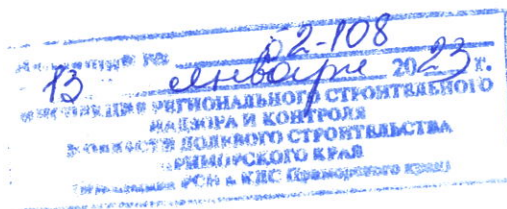 02-108
13 января 2023 г.
ИНСПЕКЦИЯ РЕГИОНАЛЬНОГО СТРОИТЕЛЬНОГО
НАДЗОРА И КОНТРОЛЯ
В ОБЛАСТИ ДОЛЕВОГО СТРОИТЕЛЬСТВА
ПРИМОРСКОГО КРАЯ
РСН и КДС Приморского края)